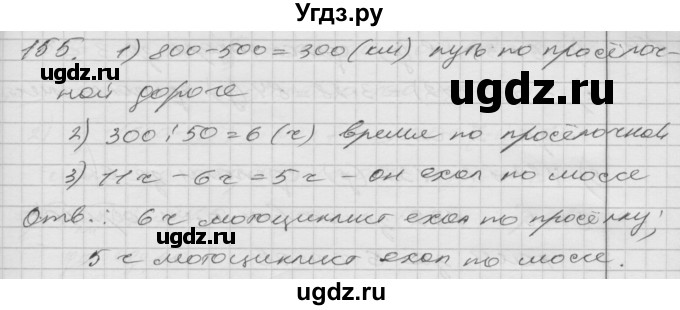 Угдз.ру
155. 1) 800-500=300 (км) путь по просёлоч-
ugdz.ru
ugdz.ru
ной дороге
2) 300:50=6 (ч) время по просёлочной
ugdz.ru
3) 11ч - 6ч = 5ч - он ехал по шоссе
Отв.: 6ч мотоциклист ехал по просёлку;
ugdz.ru
5 ч мотоциклист ехал по шоссе.
ugdz.ru